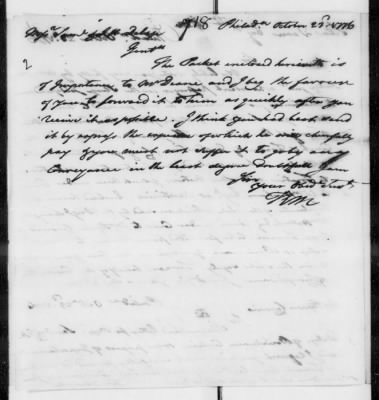 718 Philada October 23d 1776
Messrs Saml & J. H. Delap
2
Gentn
The Packet inclosed herein is
of Importance to Mr Deane and I beg the favour
of you to forward it to him as quickly after you
receive it as possible. I think you had best send
it by express the expence of which he will chearfully
pay & you must not suffer it to go by any
Conveyance in the least degree Doubtfull I am
Your Obed Servt
RM